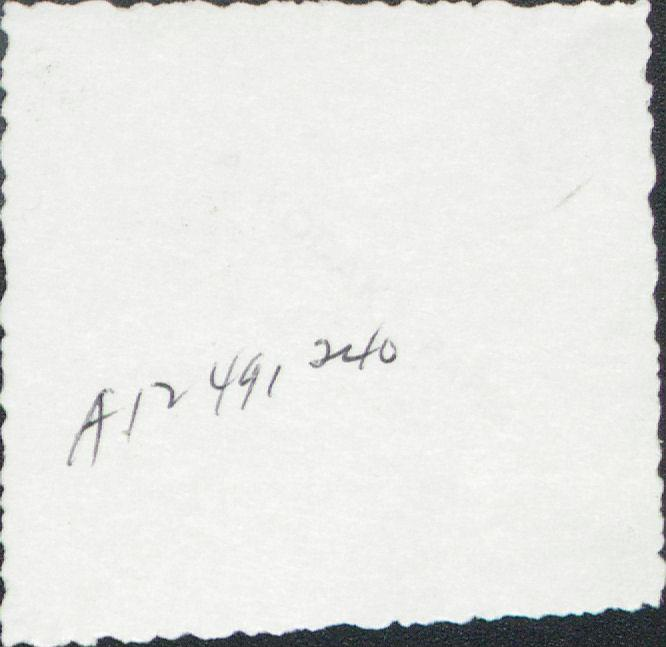 A12 491 240